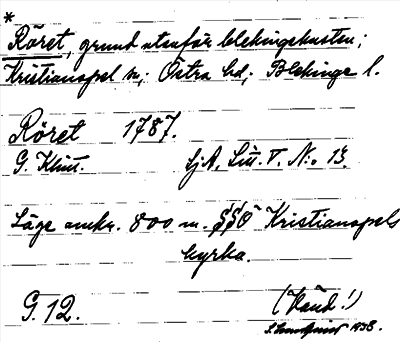 *
Röret, grund utanför blekingskusten;
Kristianopel sn; Östra hd; Blekinge l.
Röret 1787.
G. Klint. SjA, Litt. T. No. 13.
Läge omkr. 800 m. SSO Kristianopels
kyrka.
G. 12. (Vänd!)
1938.